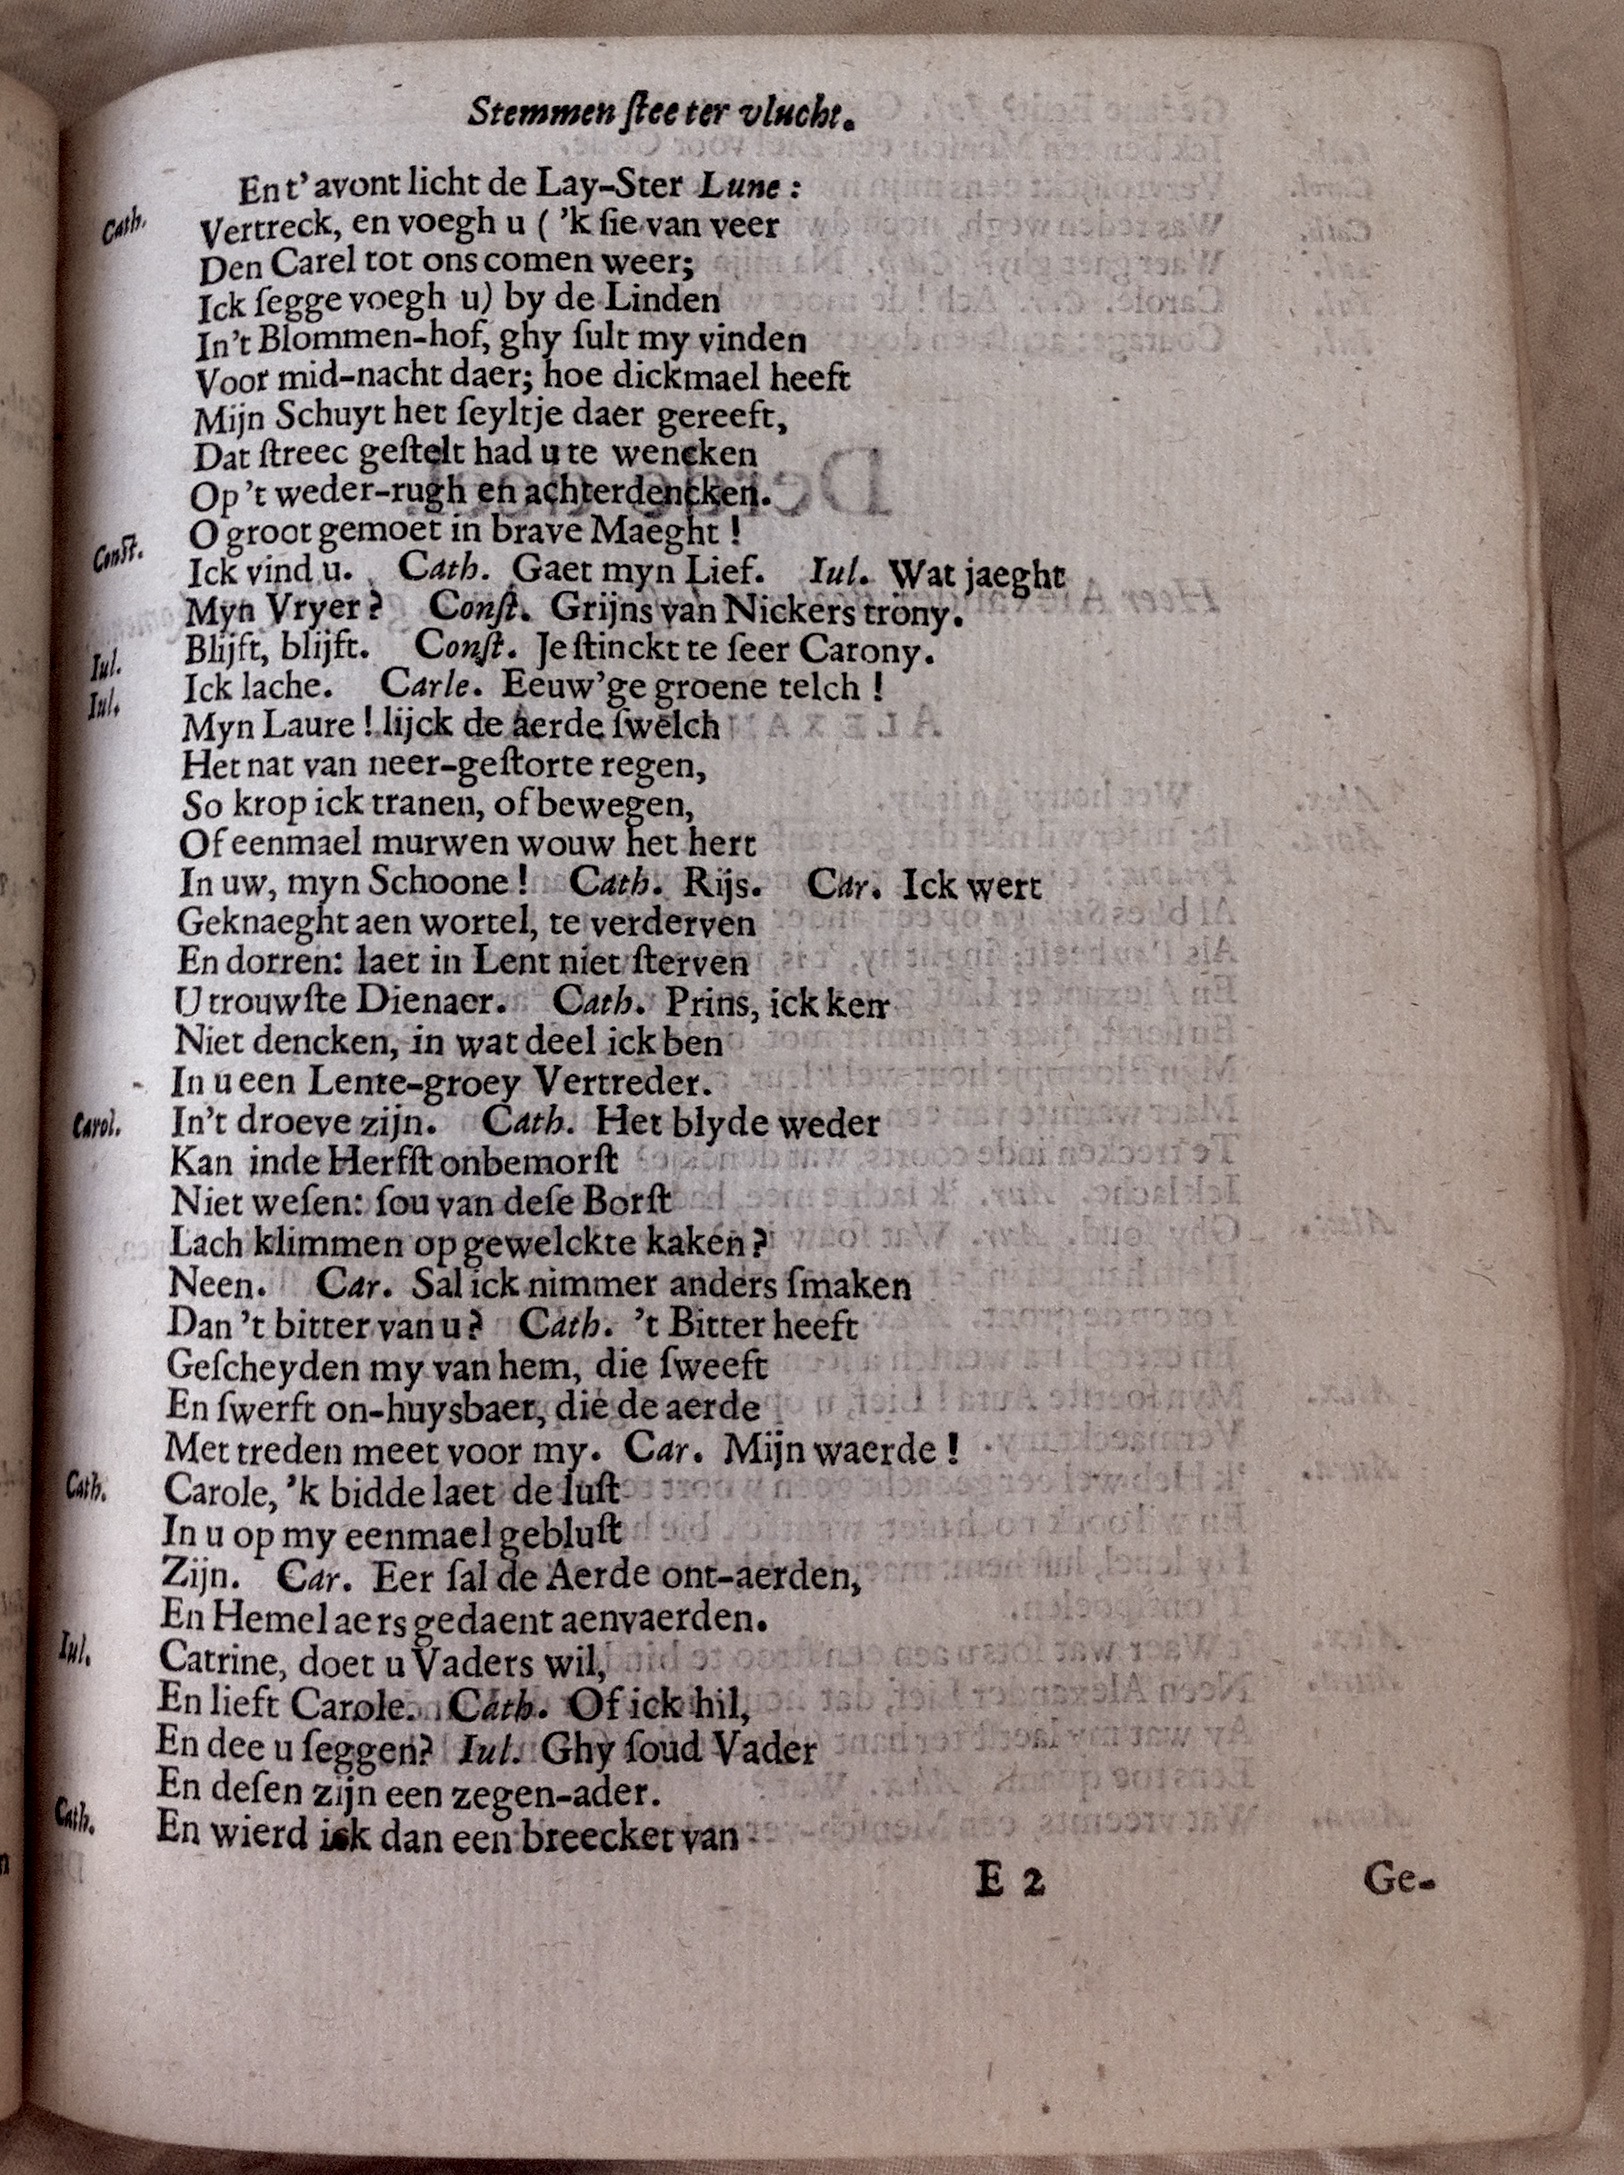 Stemmen ſtee ter vlucht.
En t' avont licht de Lay-Ster Lune :
Cath. Vertreck, en voegh u ( 'k ſie van veer
Den Carel tot ons comen weer;
Ick ſegge voegh u) by de Linden
In't Blommen-hof, ghy ſult my vinden
Voor mid-nacht daer; hoe dickmael heeft
Mijn Schuyt het ſeyltje daer gereeft,
Dat ſtreec geſtelt had u te wencken
Op 't weder-rugh en achterdencken.
Conſt. O groot gemoet in brave Maeght !
Ick vind u. Cath. Gaet myn Lief. Iul. Wat jaeght
Myn Vryer? Conſt. Grijns van Nickers trony.
Iul. Blijft, blijft. Conſt. Je ſtinckt te ſeer Carony.
Iul. Ick lache. Carle. Eeuw'ge groene telch !
Myn Laure ! lijck de aerde ſwelch
Het nat van neer-geſtorte regen,
So krop ick tranen, of bewegen,
Of eenmael murwen wouw het hert
In uw, myn Schoone ! Cath. Rijs. Car. Ick wert
Geknaeght aen wortel, te verderven
En dorren: laet in Lent niet ſterven
U trouwſte Dienaer. Cath. Prins, ick ken
Niet dencken, in wat deel ick ben
In u een Lente-groey Vertreder.
Carol. In't droeve zijn. Cath. Het blyde weder
Kan inde Herfſt onbemorſt
Niet weſen: ſou van deſe Borſt
Lach klimmen op gewelckte kaken?
Neen. Car. Sal ick nimmer anders ſmaken
Dan 't bitter van u? Cath. 't Bitter heeft
Geſcheyden my van hem, die ſweeft
En ſwerft on-huysbaer, die de aerde
Met treden meet voor my. Car. Mijn waerde !
Cath. Carole, 'k bidde laet de luſt
In u op my eenmael gebluſt
Zijn. Car. Eer ſal de Aerde ont-aerden,
En Hemel aers gedaent aenvaerden.
Iul. Catrine, doet u Vaders wil,
En lieft Carole. Cath. Of ick hil,
En dee u ſeggen? Iul. Ghy ſoud Vader
En deſen zijn een zegen-ader.
Cath. En wierd ick dan een breecket van
E 2 Ge-